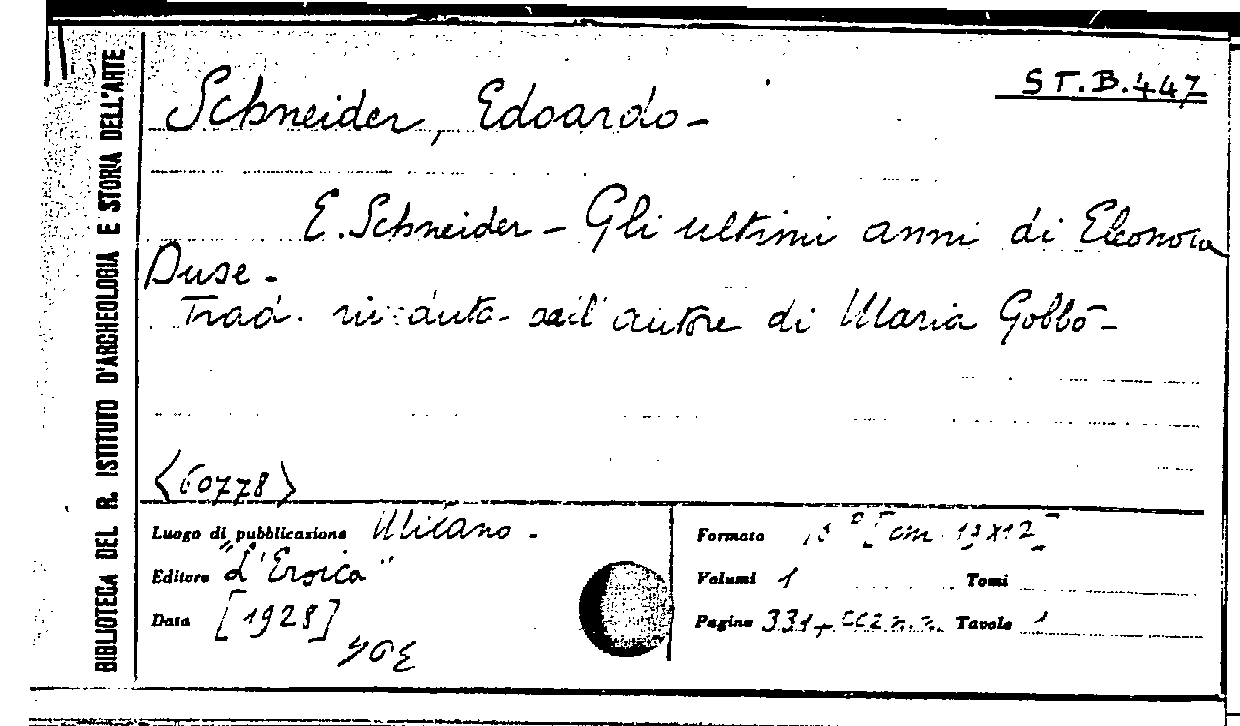 BIBLIOTECA DEL R. ISTITUTO D'ARCHEOLOGIA E STORIA DELL'ARTE
ST.B.447
Schneider, Edoardo-
E. Schneider - Gli ultimi anni di Eleonora
Duse -
Trad. riveduta dall'autore di Maria Gobbo -
<60778>
Luogo di pubblicazione Milano -
Editore "L'Eroica"
Data [1928]
Formato [cm. 19x12]
Volumi 1 Tomi
Pagine 331+ n.n. Tavole 1